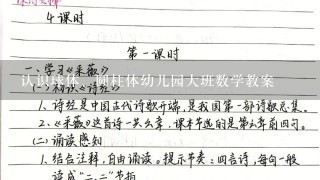 4课时
第一课时
一、学习《采薇》
认识球体、圆柱体幼儿园大班数学教案
(一)初识《诗经》
1、诗经是中国古代诗歌开端,是我国第一部诗歌总集。
2、《采薇》这首诗一共六章,课本节选的是第六章前四句。
(二)诵读感知
1、结合注释,自由诵读。提示节奏:四言诗,每句一般
读成“二、二”节拍